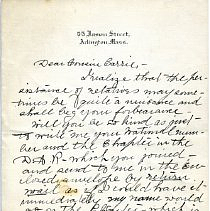 53 Jason Street,
Arlington, Mass.
Dear Cousin Carrie,-
I realize that the per-
sistance of relatives may some-
times be quite a nuisance and
shall beg your forbearance.
Will you be so kind as just
to write me your National num-
ber and the Chapter in the
D.A.R. which you joined
and send to me in the en-
closed envelope by return
mail as if I could have it
immediately my name would